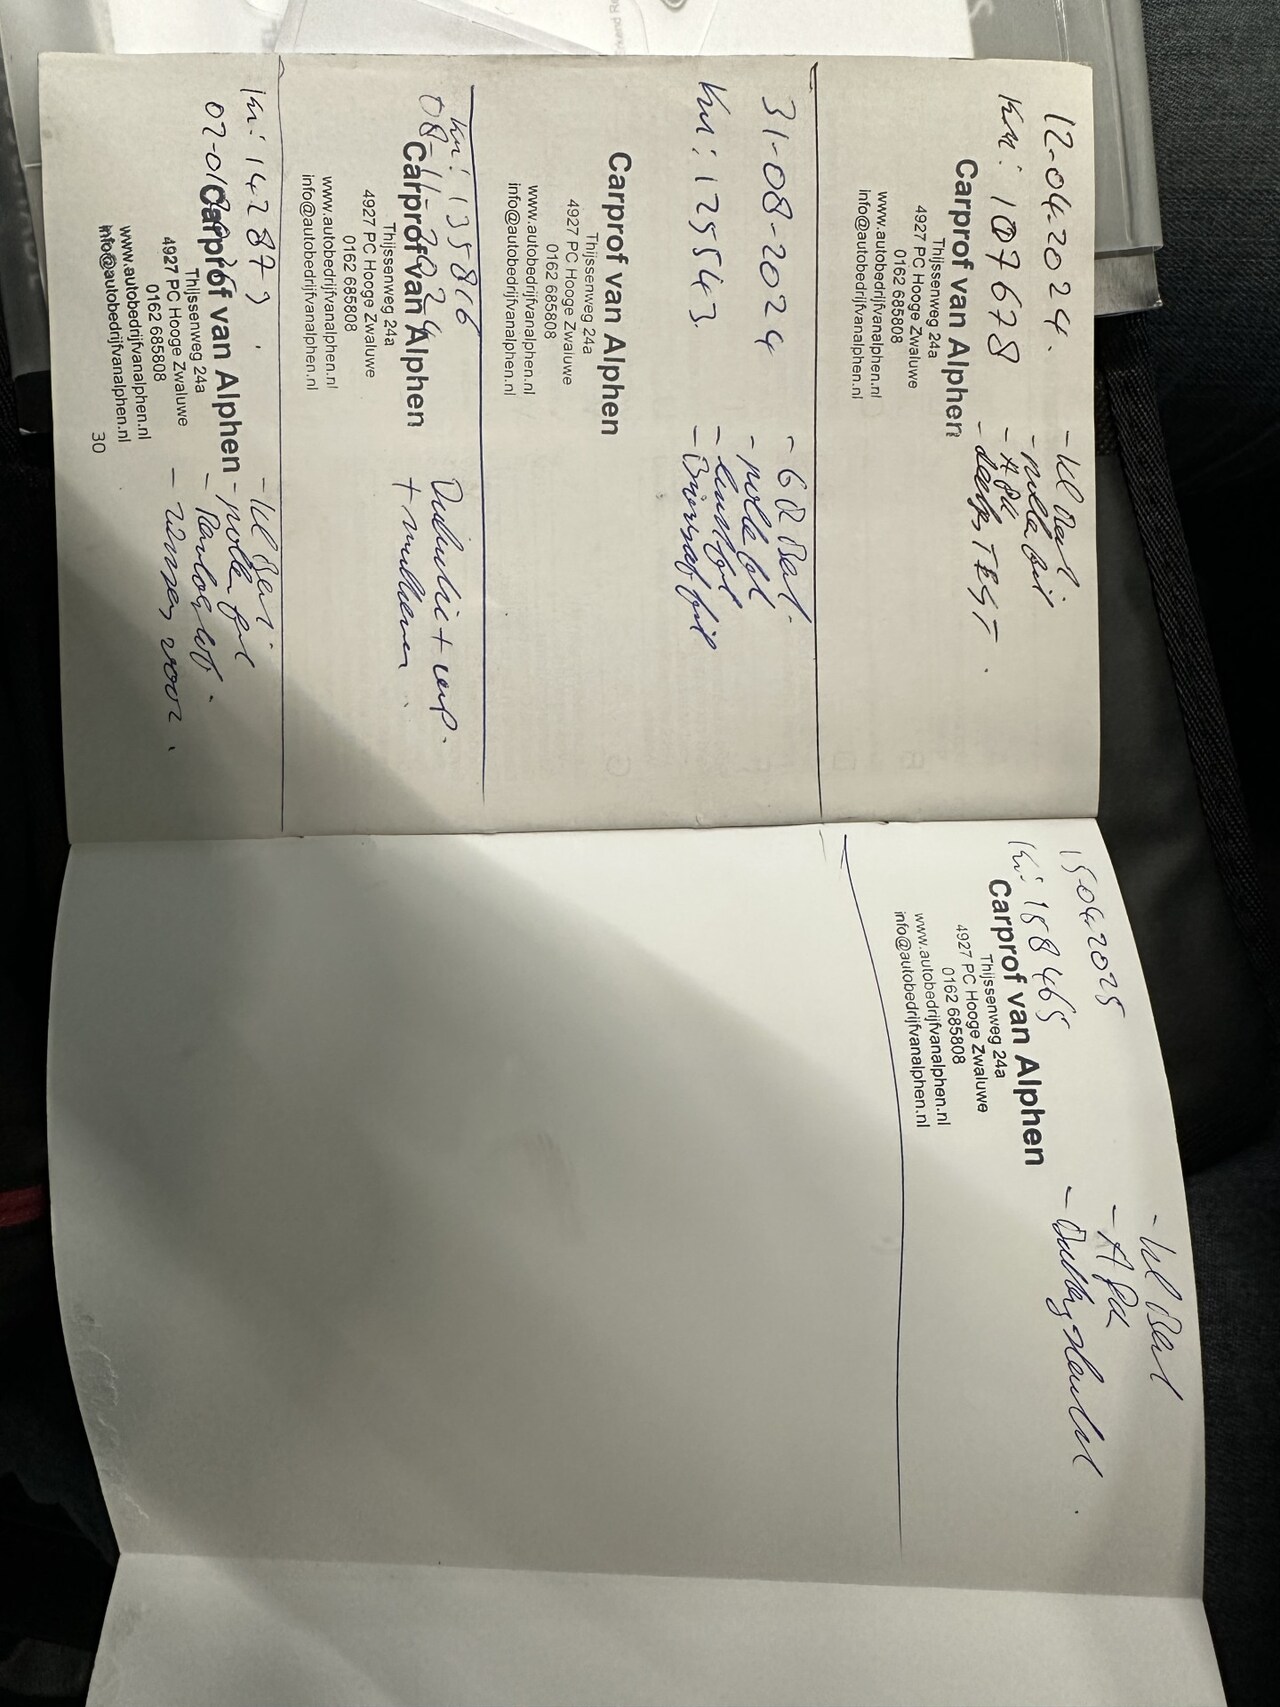 12-04-2024.
Km: 107678
- kl Beurt.
- pollen fil
- APK
- TEST.
Carprof van Alphen
Thijssenweg 24a
4927 PC Hooge Zwaluwe
0162 685808
www.autobedrijfvanalphen.nl
info@autobedrijfvanalphen.nl
31-08-2024
Km: 125543
- GR Beurt.
- pollefil
- luchtfil
- Brandstof fil
Carprof van Alphen
Thijssenweg 24a
4927 PC Hooge Zwaluwe
0162 685808
www.autobedrijfvanalphen.nl
info@autobedrijfvanalphen.nl
Km: 135816
08-11-2024
Carprof van Alphen
Thijssenweg 24a
4927 PC Hooge Zwaluwe
0162 685808
www.autobedrijfvanalphen.nl
info@autobedrijfvanalphen.nl
Km: 142873.
Carprof van Alphen
Thijssenweg 24a
4927 PC Hooge Zwaluwe
0162 685808
www.autobedrijfvanalphen.nl
info@autobedrijfvanalphen.nl
- kl Beurt.
- pollen fil
- voor.
30
15-04-2025
Km: 158465
Carprof van Alphen
Thijssenweg 24a
4927 PC Hooge Zwaluwe
0162 685808
www.autobedrijfvanalphen.nl
info@autobedrijfvanalphen.nl
- kl Beurt
- APK